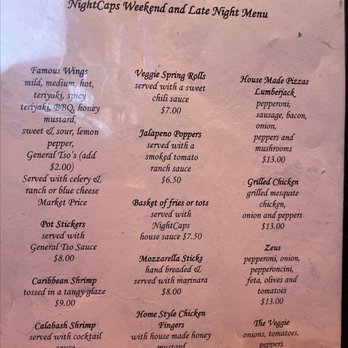 NightCaps Weekend and Late Night Menu
Famous Wings
mild, medium, hot,
teriyaki, spicy
teriyaki, BBQ, honey
mustard,
sweet & sour, lemon
pepper,
General Tso's (add
$2.00)
Served with celery &
ranch or blue cheese
Market Price
Pot Stickers
served with
General Tso Sauce
$8.00
Caribbean Shrimp
tossed in a tangy glaze
$9.00
Calabash Shrimp
served with cocktail
sauce
Veggie Spring Rolls
served with a sweet
chili sauce
$7.00
Jalapeno Poppers
served with a
smoked tomato
ranch sauce
$6.50
Basket of fries or tots
served with
NightCaps
house sauce $7.50
Mozzarella Sticks
hand breaded &
served with marinara
$8.00
Home Style Chicken
Fingers
with house made honey
mustard
House Made Pizzas
Lumberjack
pepperoni,
sausage, bacon,
onion,
peppers and
mushrooms
$13.00
Grilled Chicken
grilled mesquite
chicken,
onion and peppers
$13.00
Zeus
pepperoni, onion,
pepperoncini,
feta, olives and
tomatoes
$13.00
The Veggie
onions, tomatoes,
peppers